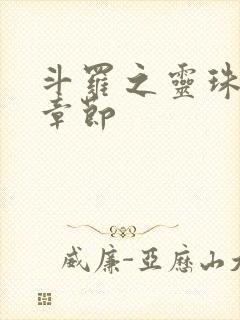 斗羅之靈珠
章節
威廉-亞歷山大